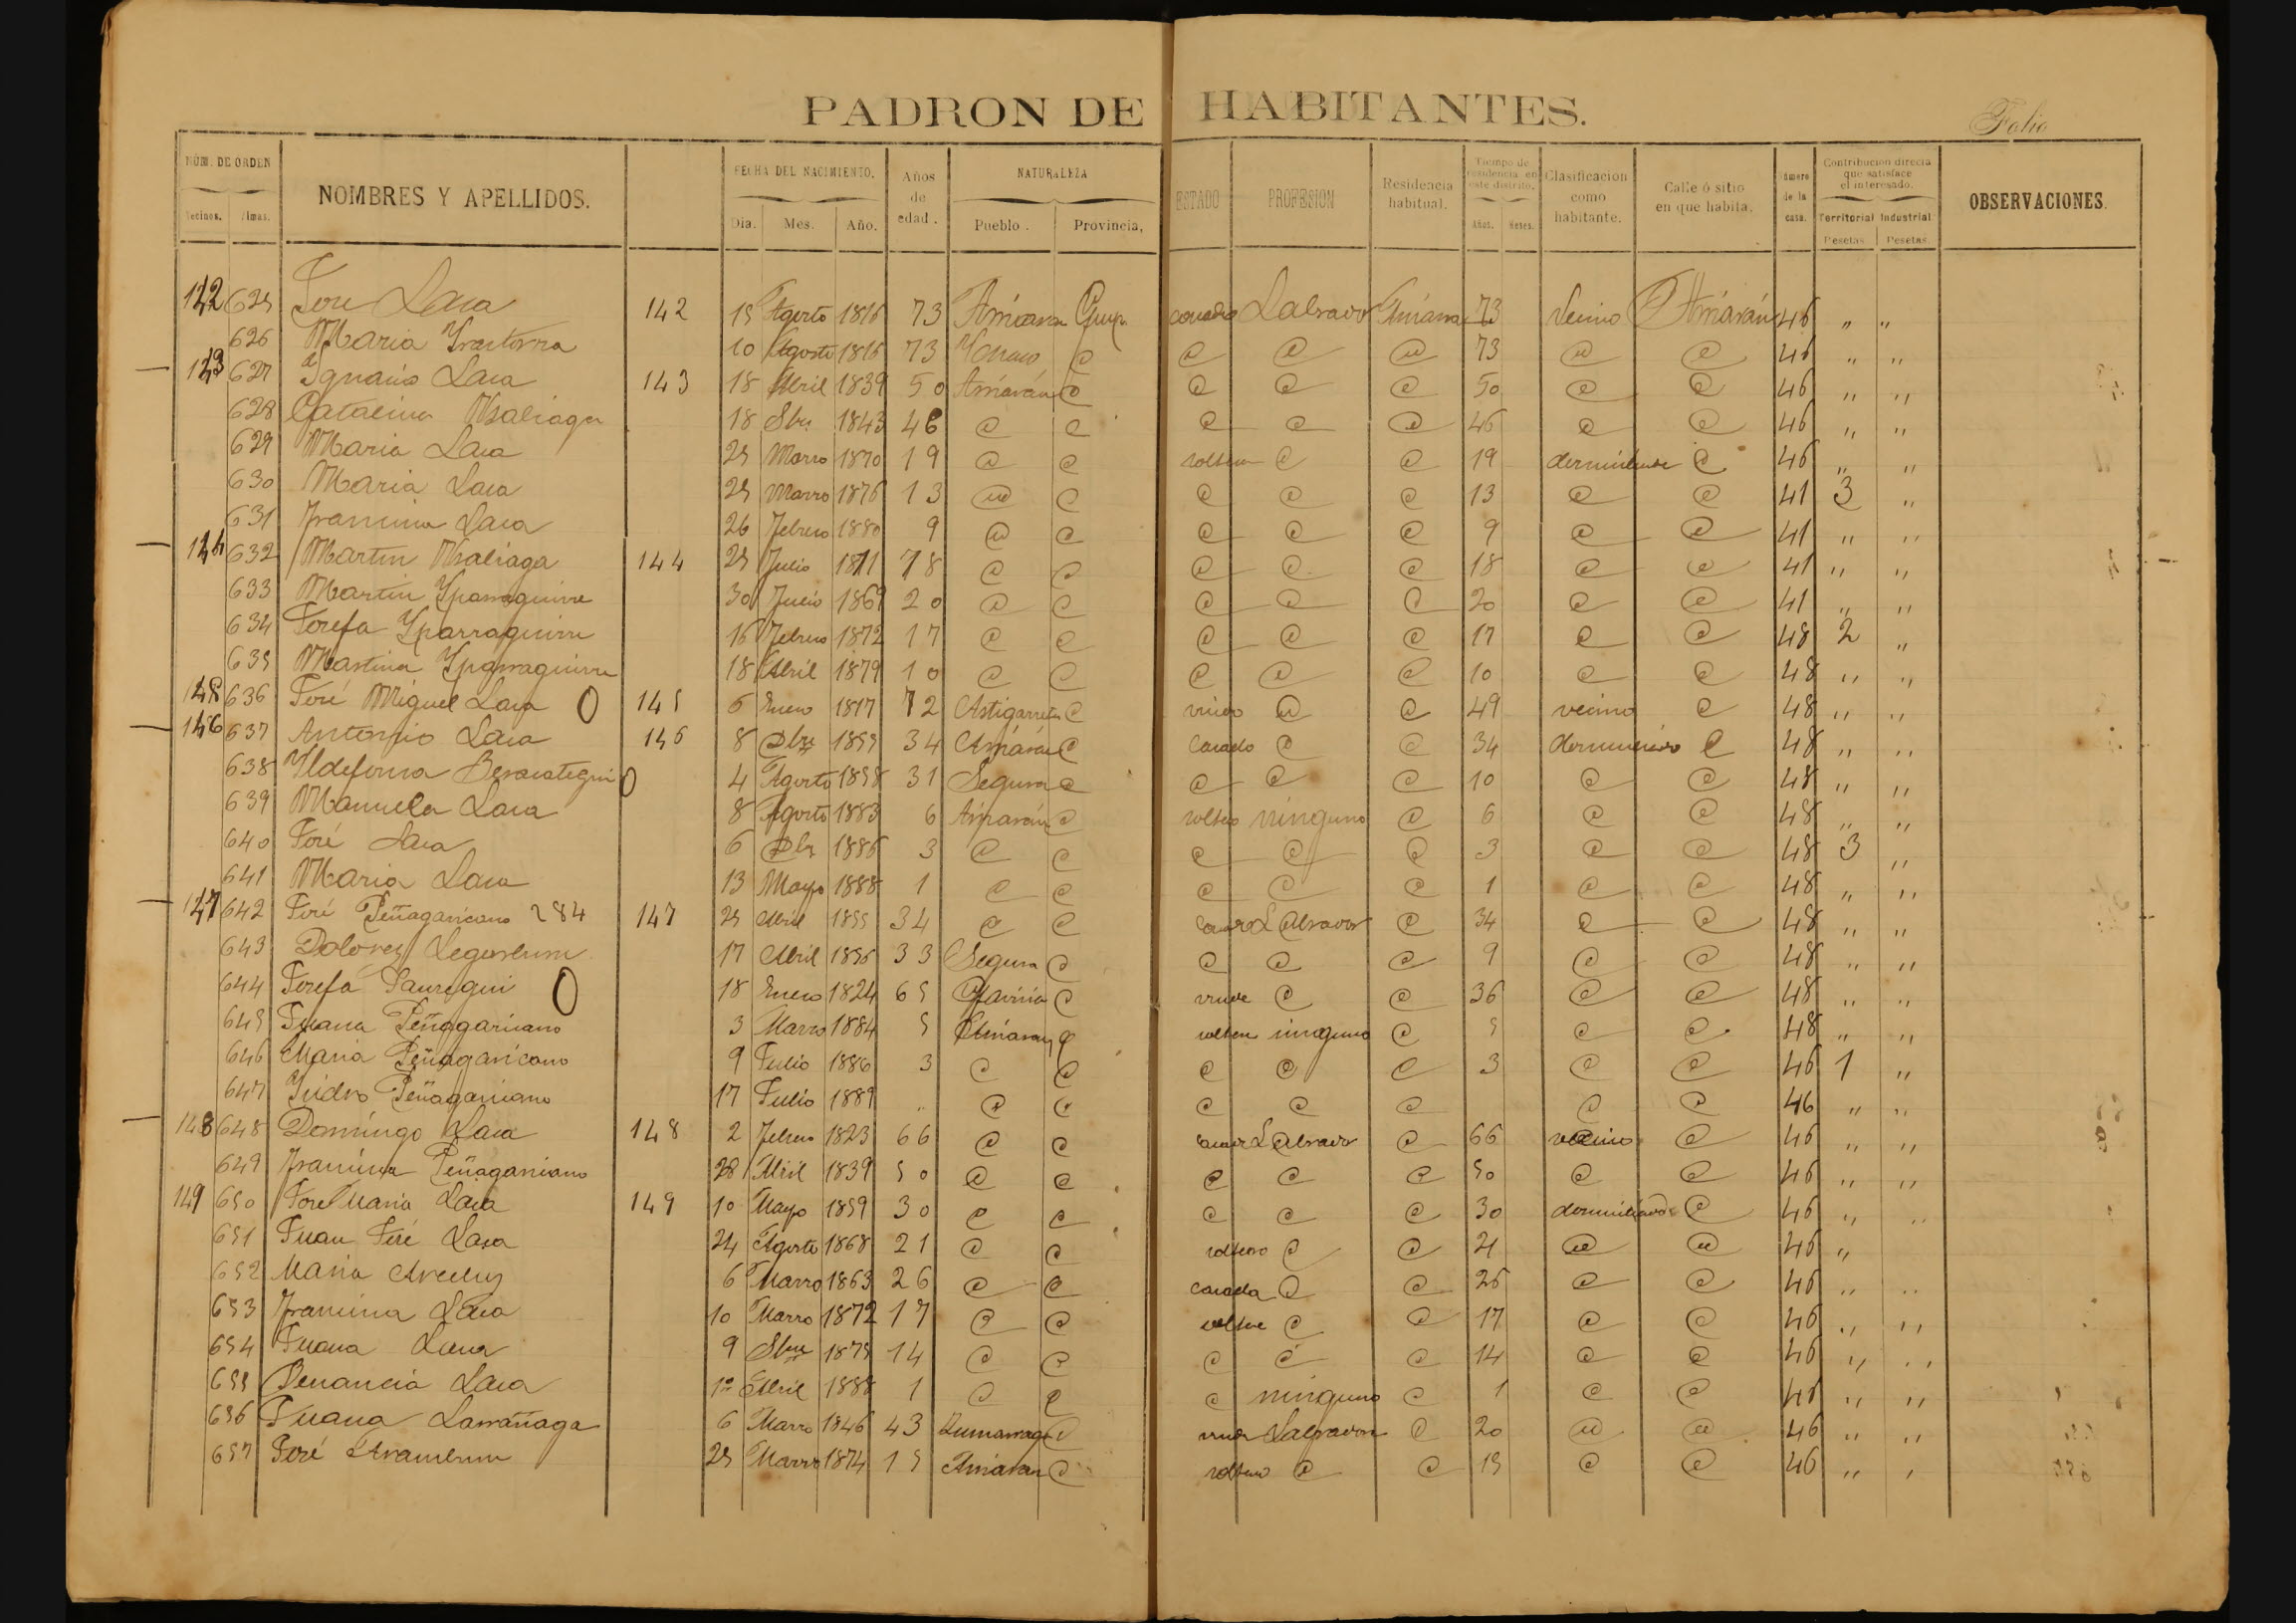 PADRON DE HABITANTES.
Folio
NÚM. DE ORDEN NOMBRES Y APELLIDOS. FECHA DEL NACIMIENTO. Años de edad. NATURALEZA ESTADO PROFESION Residencia habitual. Tiempo de residencia en este distrito. Clasificacion como habitante. Calle ó sitio en que habita. Número de la casa. Contribucion directa que satisface el interesado. OBSERVACIONES.
Vecinos. Almas. Dia. Mes. Año. Pueblo. Provincia, Años. Meses. Territorial Industrial
Pesetas. Pesetas.
142 625 José Lasa 142 15 Agosto 1816 73 Labrador 73 Vecino 46 " "
626 Maria 10 Agosto 1816 73 @ @ @ @ 73 @ @ 46 " "
143 627 Ygnacio Lasa 143 18 Abril 1839 50 @ @ @ @ 50 @ @ 46 " "
628 Catalina 18 1843 46 @ @ @ @ @ 46 @ @ 46 " "
629 Maria Lasa 25 Marzo 1870 19 @ @ @ @ 19 @ 46 " "
630 Maria Lasa 25 Marzo 1876 13 @ @ @ @ @ 13 @ @ 41 3 "
631 Francisca Lasa 26 Febrero 1880 9 @ @ @ @ @ 9 @ @ 41 " "
144 632 Martin 144 25 Julio 1811 78 @ @ @ @ @ 18 @ @ 41 " "
633 Martin Yparraguirre 30 Junio 1869 20 @ @ @ @ @ 20 @ @ 41 " "
634 Josefa Yparraguirre 16 Febrero 1872 17 @ @ @ @ @ 17 @ @ 48 2 "
635 Martina Yparraguirre 18 Abril 1879 10 @ @ @ @ @ 10 @ @ 48 " "
636 José Miguel Lasa 145 6 Enero 1817 72 Astigarreta @ viudo @ @ 49 vecino @ 48 " "
146 637 Antonio Lasa 146 8 1855 34 @ Casado @ @ 34 @ 48 " "
638 Yldefonsa 4 Agosto 1858 31 Segura @ @ @ @ 10 @ @ 48 " "
639 Manuela Lasa 8 Agosto 1883 6 @ ninguno @ 6 @ @ 48 " "
640 José Lasa 6 1886 3 @ @ @ @ @ 3 @ @ 48 3 "
641 Maria Lasa 13 Mayo 1888 1 @ @ @ @ @ 1 @ @ 48 " "
147 642 José Peñagaricano 284 147 25 Abril 1855 34 @ @ Labrador @ 34 @ @ 48 " "
643 Dolores 17 Abril 1856 33 Segura @ @ @ @ 9 @ @ 48 " "
644 Josefa Jauregui 18 Enero 1824 65 Gaviria @ @ @ 36 @ @ 48 " "
645 Juana Peñagaricano 3 Marzo 1884 5 ninguno @ 5 @ @ 48 " "
646 Maria Peñagaricano 9 Julio 1886 3 @ @ @ @ @ 3 @ @ 46 1 "
647 Ysidro Peñagaricano 17 Julio 1889 " @ @ @ @ @ @ @ 46 " "
148 648 Domingo Lasa 148 2 Febrero 1823 66 @ @ Labrador @ 66 vecino @ 46 " "
649 Francisca Peñagaricano 28 Abril 1839 50 @ @ @ @ @ 50 @ @ 46 " "
149 650 José Maria Lasa 149 10 Mayo 1859 30 @ @ @ @ @ 30 @ 46 " "
651 Juan José Lasa 24 Agosto 1868 21 @ @ soltero @ @ 21 @ @ 46 "
652 Maria 6 Marzo 1863 26 @ @ casada @ @ 26 @ @ 46 " "
653 Francisca Lasa 10 Marzo 1872 17 @ @ @ @ 17 @ @ 46 " "
654 Juana Lasa 9 1875 14 @ @ @ @ @ 14 @ @ 46 " "
655 Venancia Lasa 1º Abril 1888 1 @ @ @ ninguno @ 1 @ @ 46 " "
656 Juana Larrañaga 6 Marzo 1846 43 @ Labrador @ 20 @ @ 46 " "
657 José 25 Marzo 1874 15 @ soltero @ @ 15 @ @ 46 " "